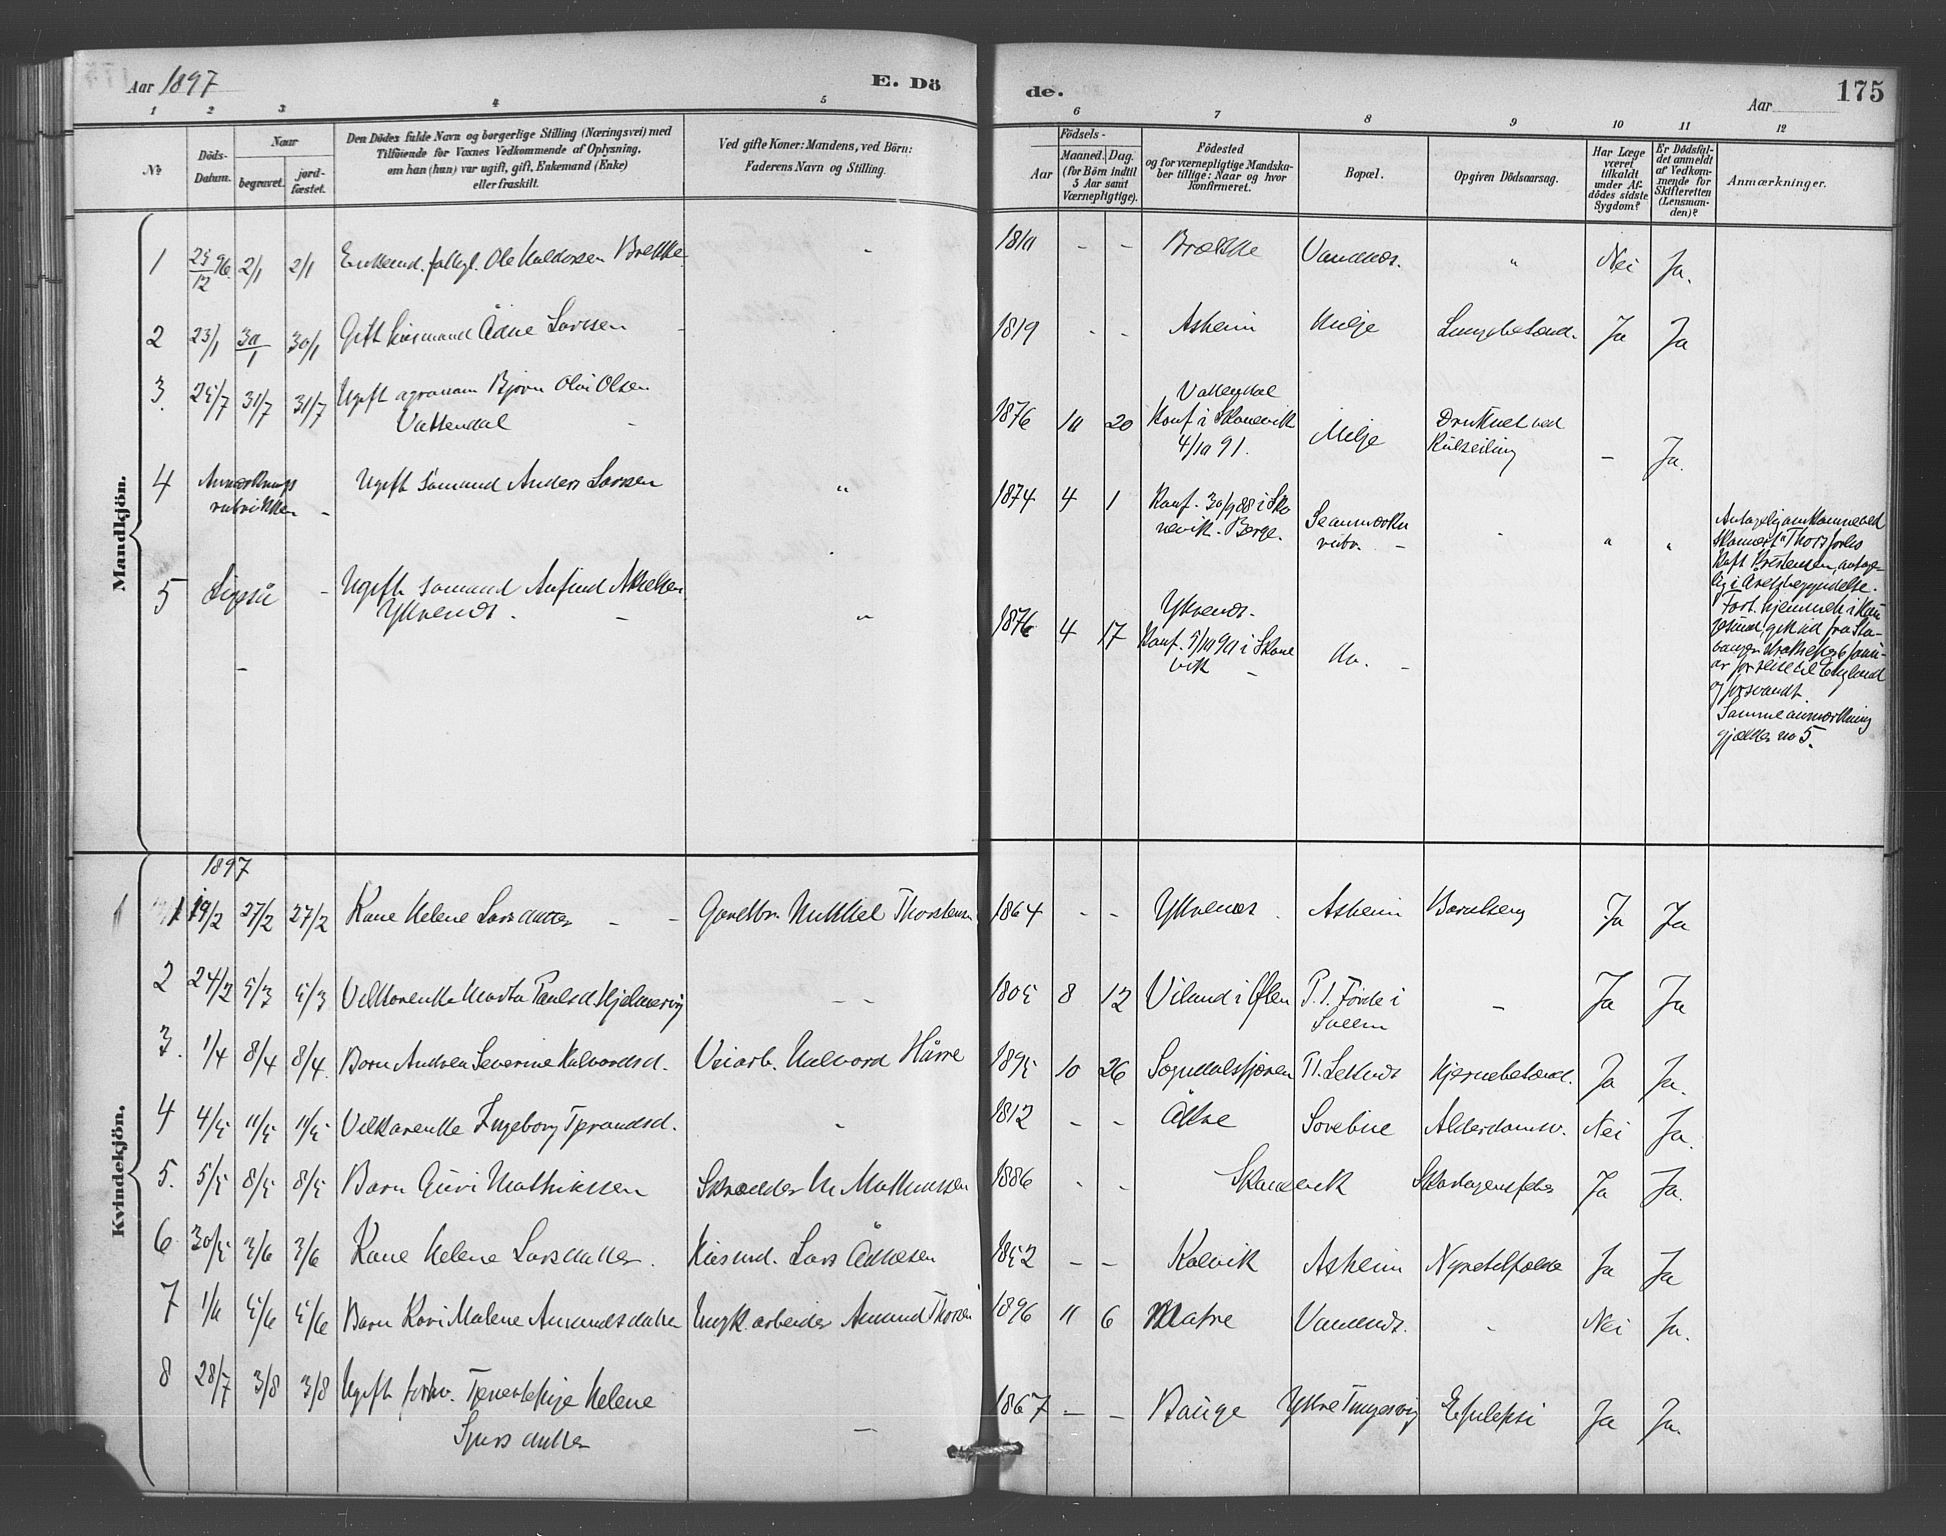 Aar 1897
E. Dö
de.
Aar
175
1 2 3 4 5 6 7 8 9 10 11 12
Nr
Döds-
Datum.
Naar
begravet.
jord-
fæstet.
Den Dödes fulde Navn og borgerlige Stilling (Næringsvei) med
Tilföiende for Voxnes Vedkommende af Oplysning,
om han (hun) var ugift, gift, Enkemand (Enke)
eller fraskilt.
Ved gifte Koner: Mandens, ved Börn:
Faderens Navn og Stilling.
Födsels-
Aar
Maaned. Dag.
(for Börn indtil
5 Aar samt
Værnepligtige).
Födested
og for værnepligtige Mandska-
ber tillige: Naar og hvor
konfirmeret.
Bopæl.
Opgiven Dödsaarsag.
Har Læge
været
tilkaldt
under Af-
dödes sidste
Sygdom?
Er Dödsfal-
det anmeldt
af Vedkom-
mende for
Skifteretten
(Lensman-
den)?
Anmærkninger.
Mandkjön.
1 25/12 96 2/1 2/1 Enkemd. Ole Haldorsen Brekke - 1810 - - Brække Vandnæs. " Nei Ja.
2 23/1 30/1 30/1 Gift Huusmand Ådne Larsen - 1819 - - Asheim Milje Lungebetænd. Ja Ja
3. 25/7 31/7 31/7 Ugift agronom Bjørn Olai Olsen
Vattendal - 1876 10 20 Vattendal
Konf i Skonevik
4/10 91. Milje Druknet ved
Kulseiling - Ja.
4 Anmærknings
rubrikken - Ugift sømand Anders Larsen " 1874 4 1 Konf. 30/9 88 i Sko
nevik. Berge. Se anmærkn
rubr. - - " "
Antagelig omkommet ved
Skonnert "Thors" forlis
antage-
lig i Aarets begyndelse.
Fort. hjemmeh. i Hau-
gesund, gik ud fra Sta-
vanger
for reise til England
og forsvandt.
Samme anmærkning
gjælder no 5.
5 Ligesaa - Ugift sømand Anfind Akselsen
Ykrenæs. - " 1876 4 17 Ykrenæs.
Konf. 5/10 90 i Skone
vik - Do. -
Kvindekjön.
1897
1 19/2 27/2 27/2 Kone Helene Larsdatter - - Gaardbr. Mikkel Thorstensen 1864 - - Ykrenæs. Asheim Barnlseng Ja Ja
2 24/2 5/3 5/3 Vilkorenke Marta Paulsd. Hjelmervig - - 1805 8 12 Viland i Ølen P. t. Førde i
Sveen - Ja Ja
3. 1/4 8/4 8/4. Barn Andrea Severine Halvordsd. Veiarb. Halvord Hårre 1895 10 26 Sogndalsfjæren Hjernebetænd. Ja Ja.
4 4/5 11/5 11/5 Vilkårenke Ingeborg Tjerandsd. - 1812 - - Åkre Sørebue Alderdomssv. Nei Ja.
5. 5/5 8/5 8/5 Barn Guri Mathiassen Skrædder M. Mathiassen 1886 - - Skonevik Skarlagensfeber Ja Ja.
6 30/5 3/6 3/6 Kone Helene Larsdatter. Huusmd. Lars Ådnesen 1852 - - Kolvik Asheim Nyretilfælde Ja Ja
7 1/6 5/6 5/6 Barn Kari Malene Amundsdatter arbeider Amund Thorsen 1896 11 6 Matre Vannæs. - Nei Ja.
8 28/7 3/8 3/8 Ugift forhv. Tjenestepige Helene
Sjursdatter - 1867 - - Bauge Ykre Tungesvig Epilepsi Ja Ja.